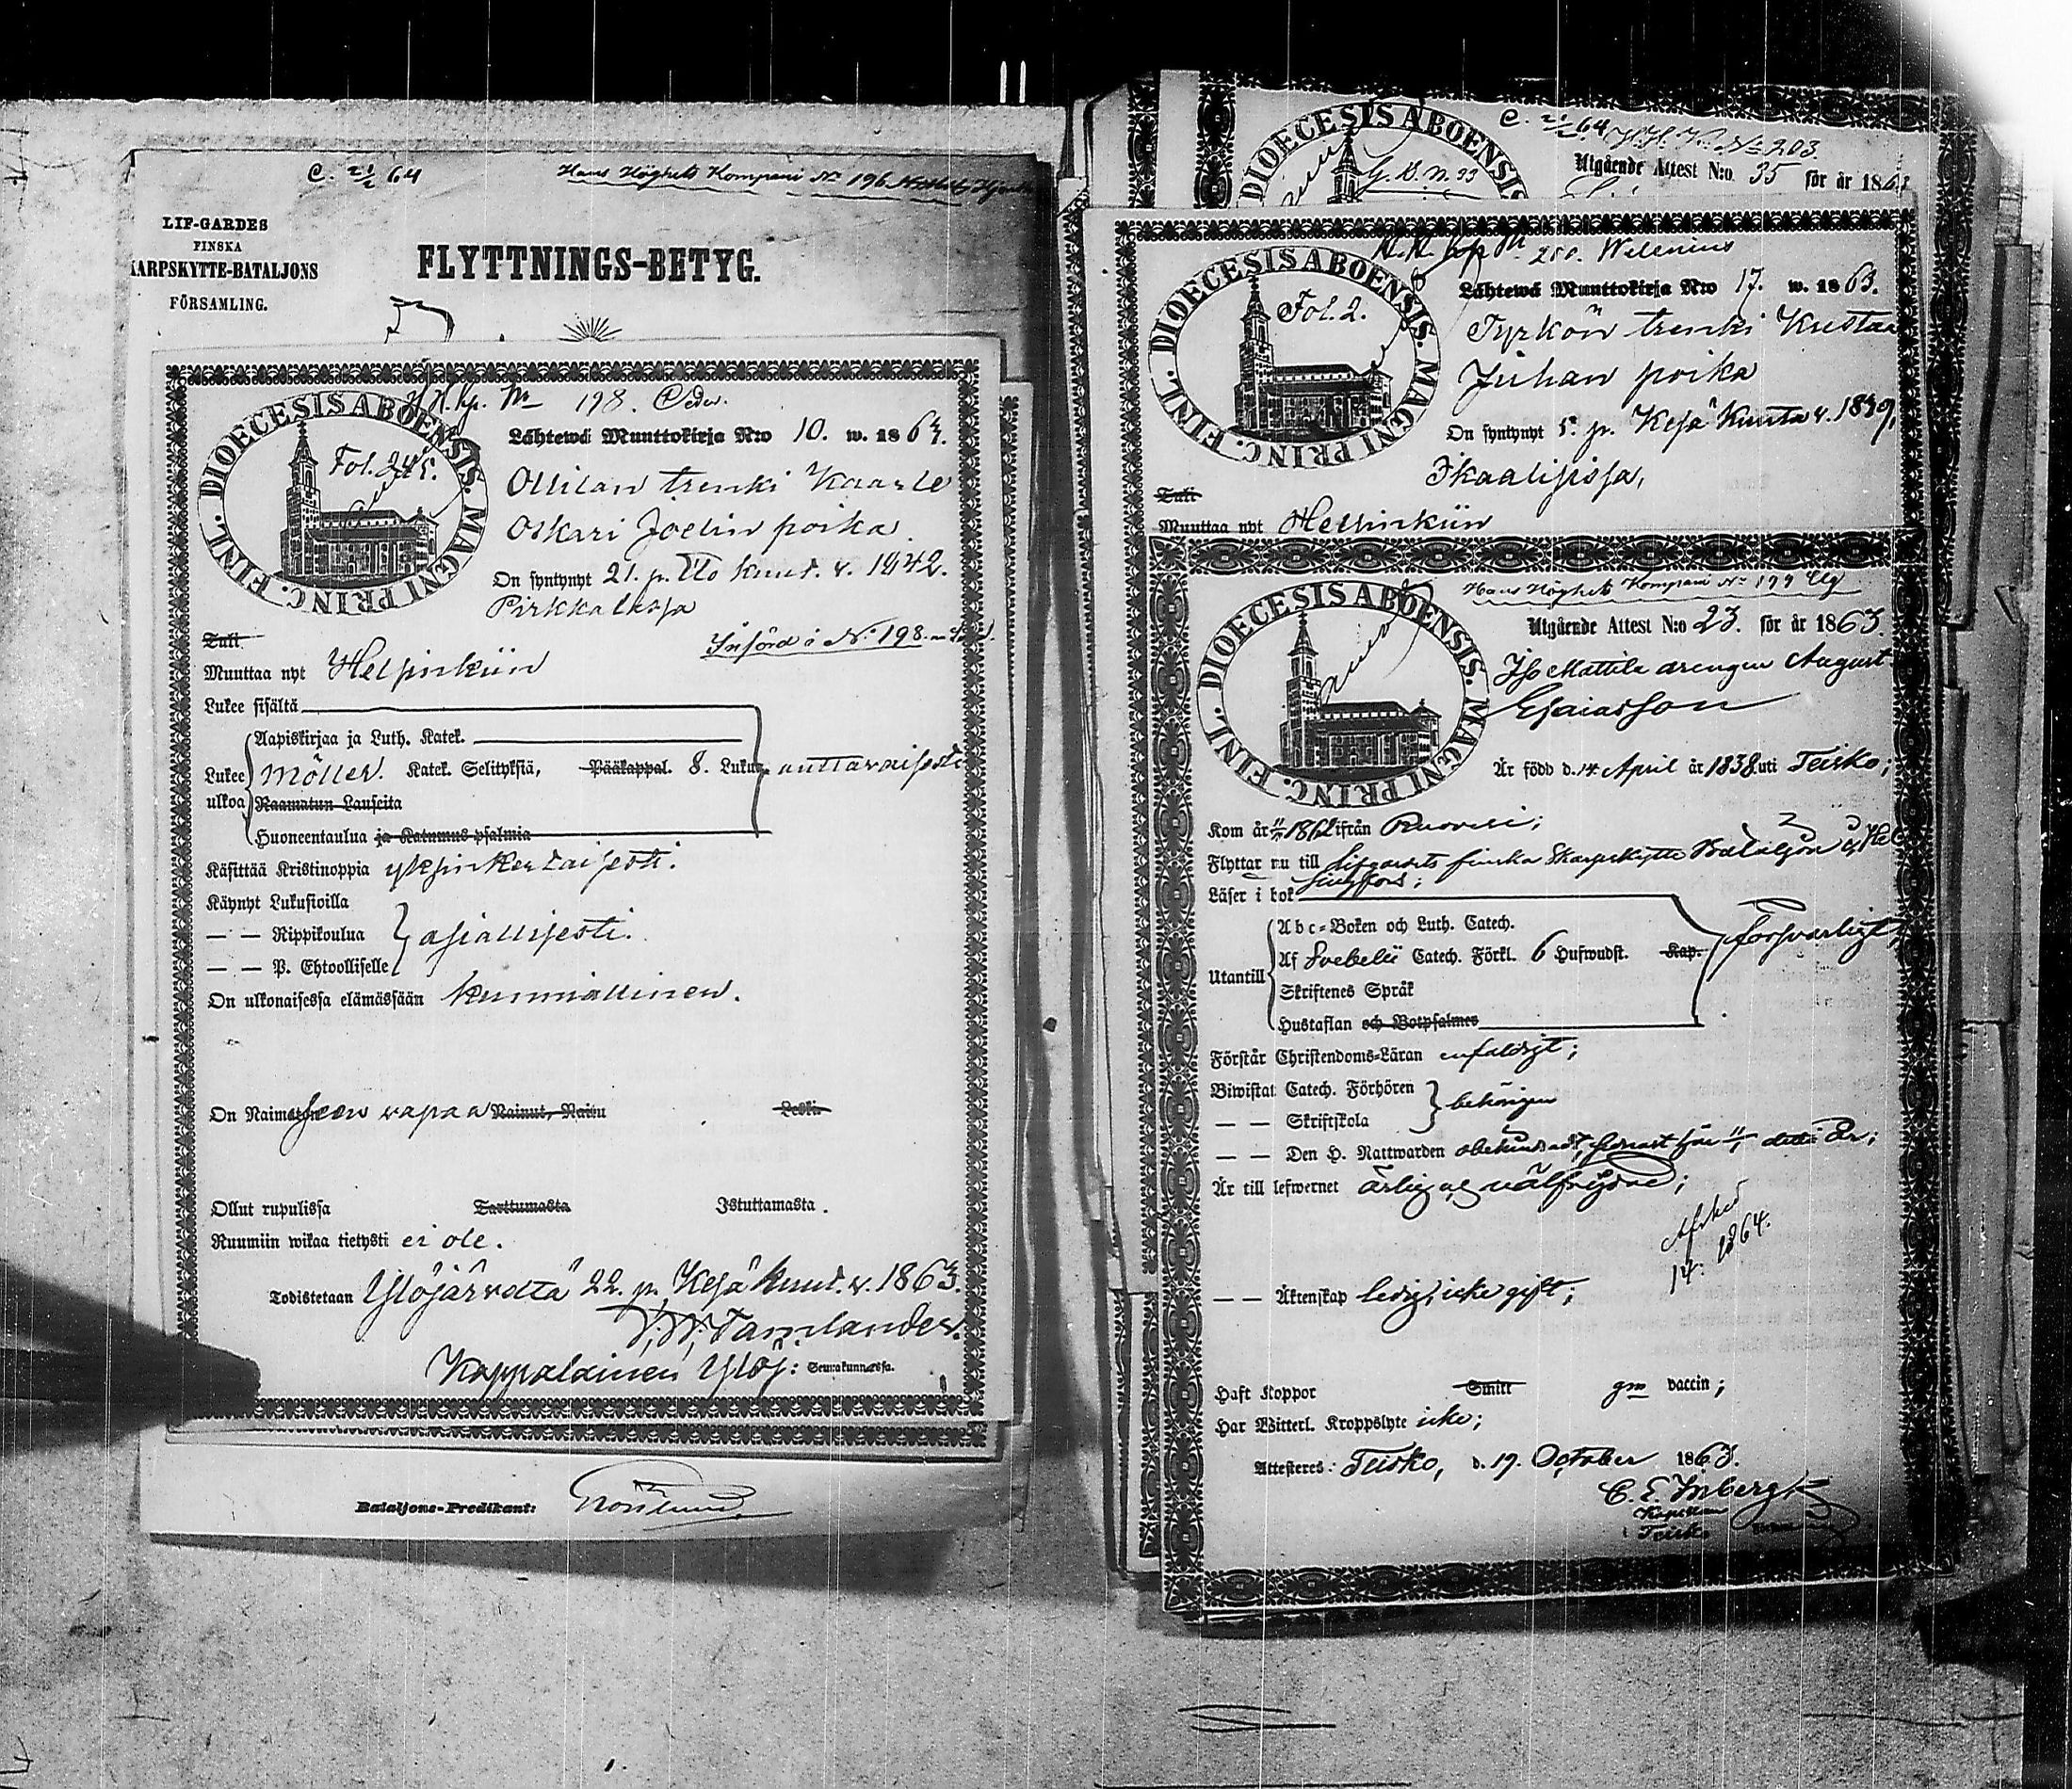 C. 21/2 64
Hans Höghets Kompani No 196
LIF-GARDES
FINSKA
KARPSKYTTE-BATALJONS
FÖRSAMLING.
FLYTTNINGS-BETYG.
H. H. Kp. No 198. Ceder.
DIOECESIS ABOENSIS. MAGNI PRINC. FINL.
Fol. 245.
Lähtewä Muuttokirja N:o 10. w. 1863.
Ollilan trenki Kaarle
Oskari Joelin poika.
On syntynyt 21. p. Elo kuut. v. 1842.
Pirkkalassa
Tuli
Införd i No 198.
Muuttaa nyt Helsinkiin
Lukee sisältä
Aapiskirjaa ja Luth. Katek.
Lukee ulkoa
Möller. Katek. Selityksiä, Pääkappal. 8. Lukua auttavaisesti
Raamatun Lauseita
Huoneentaulua ja Katumus-psalmia
Käsittää Kristinoppia yksinkertaisesti.
Käynyt Lukusioilla
— — Rippikoulua asiallisesti.
— — P. Ehtoolliselle
On ulkonaisessa elämässään kunniallinen.
On Naimiseen vapaa Nainut, Naitu Leski
Ollut rupulissa Tarttumasta Istuttamasta.
Ruumiin wikaa tietysti ei ole.
Todistetaan Ylöjärveltä 22. p. Kesä kuut. v. 1863.
Kappalainen Ylöj: Seurakunnassa.
Bataljons-Predikant:
DIOECESIS ABOENSIS
G. D. N. 33
C. 21/2 64
H. H. K. No 203.
Utgående Attest N:o 35 för år 1863
H. H. Kp No. 200. Welenius
DIOECESIS ABOENSIS. MAGNI PRINC. FINL.
Fol. 2.
Lähtewä Muuttokirja N:o 17. w. 1863.
Tyrkön trenki Kustaa
Juhan poika
On syntynyt 5. p. Kesä Kuuta v. 1839,
Ikaalisissa,
Tuli
Muuttaa nyt Helsinkiin
Hans Höghets Kompani No 199 Elg
DIOECESIS ABOENSIS. MAGNI PRINC. FINL.
Utgående Attest N:o 23. för år 1863.
Iso Mattila drengen August
Esaiasson
Är född d. 14 April år 1838 uti Teisko;
Kom år 1862 ifrån Ruovesi;
Flyttar nu till Lifgardets finska Skarpskytte Bataljon i Hel
singfors;
Läser i bok
Abc-Boken och Luth. Catech.
Utantill
Af Svebelii Catech. Förkl. 6 Hufwudst. Kap. försvarligt,
Skriftenes Språk
Hustaflan och Botpsalmer
Förstår Christendoms-Läran enfaldigt;
Biwistat Catech. Förhören
— — Skriftskola behörigen
— — Den H. Nattwarden obehindradt, senast den 11/10 detta år;
Är till lefwernet ärlig och välfrejdad;
1864.
— — Äktenskap ledig, icke gift;
Haft Koppor Smitt gm vaccin;
Har Witterl. Kroppslyte icke;
Attesteres: Teisko, d. 19. October 1863.
C. E. Inberg
Kapellan
i Teisko